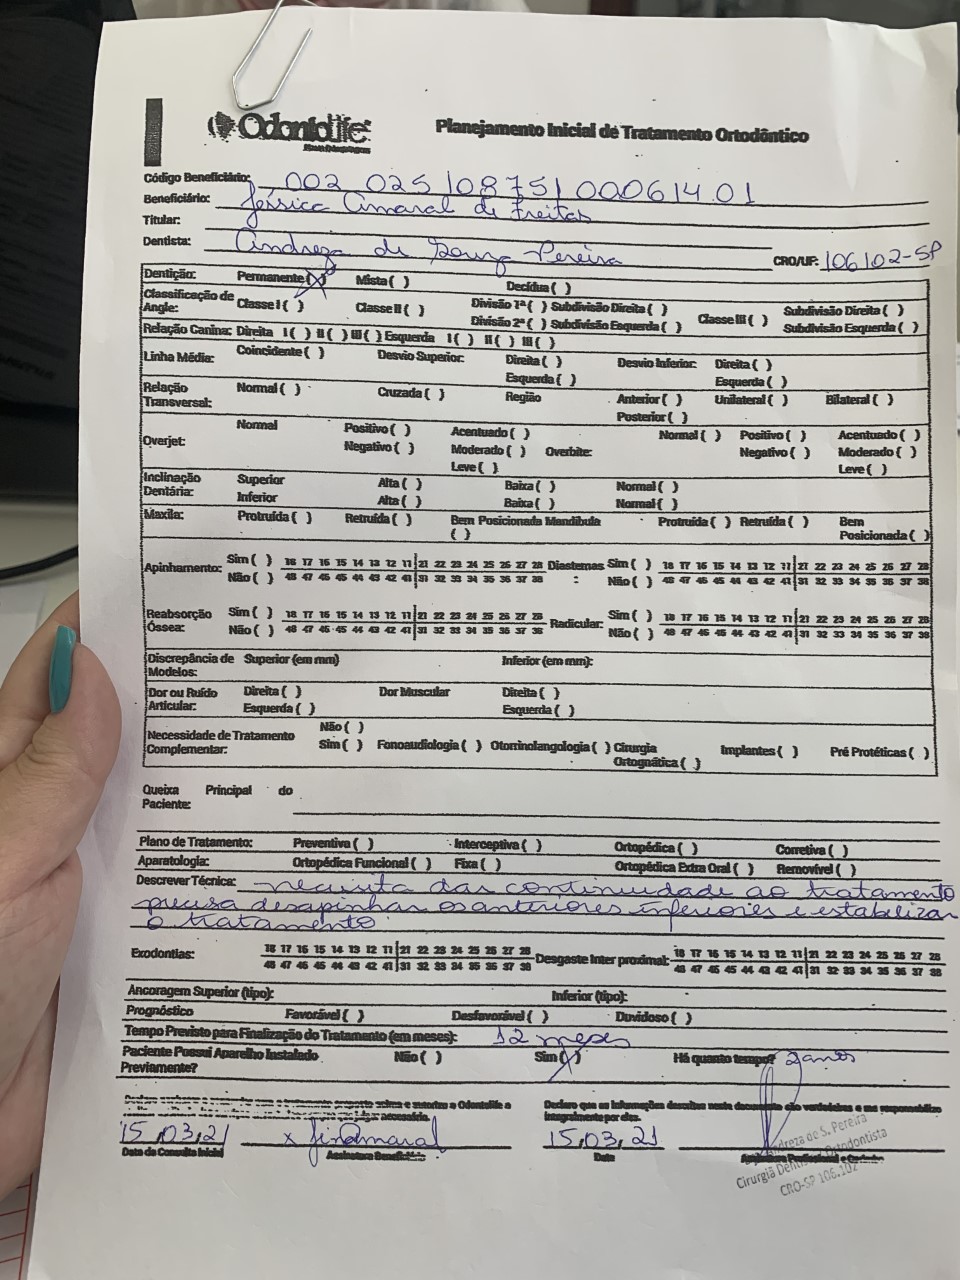 Odontolife
Planejamento Inicial de Tratamento Ortodôntico
Código Beneficiário: 002 025 10875100061401
Beneficiário: Jéssica Amaral de Freitas
Titular:
Dentista: Andreza de Souza Pereira CRO/UF: 106102-SP
Dentição: Permanente (X) Mista ( ) Decídua ( )
Classificação de Angle: Classe I ( ) Classe II ( ) Divisão 1ª ( ) Subdivisão Direita ( ) Classe III ( ) Subdivisão Direita ( )
Divisão 2ª ( ) Subdivisão Esquerda ( ) Subdivisão Esquerda ( )
Relação Canina: Direita I ( ) II ( ) III ( ) Esquerda I ( ) II ( ) III ( )
Linha Média: Coincidente ( ) Desvio Superior: Direita ( ) Desvio Inferior: Direita ( )
Esquerda ( ) Esquerda ( )
Relação Transversal: Normal ( ) Cruzada ( ) Região Anterior ( ) Unilateral ( ) Bilateral ( )
Posterior ( )
Overjet: Normal Positivo ( ) Acentuado ( ) Normal ( ) Positivo ( ) Acentuado ( )
Negativo ( ) Moderado ( ) Overbite: Negativo ( ) Moderado ( )
Leve ( ) Leve ( )
Inclinação Dentária: Superior Alta ( ) Baixa ( ) Normal ( )
Inferior Alta ( ) Baixa ( ) Normal ( )
Maxila: Protruída ( ) Retruída ( ) Bem Posicionada Mandíbula ( ) Protruída ( ) Retruída ( ) Bem Posicionada ( )
Apinhamento: Sim ( ) 18 17 16 15 14 13 12 11 21 22 23 24 25 26 27 28 Diastemas: Sim ( ) 18 17 16 15 14 13 12 11 21 22 23 24 25 26 27 28
Não ( ) 48 47 46 45 44 43 42 41 31 32 33 34 35 36 37 38 Não ( ) 48 47 46 45 44 43 42 41 31 32 33 34 35 36 37 38
Reabsorção Óssea: Sim ( ) 18 17 16 15 14 13 12 11 21 22 23 24 25 26 27 28 Radicular: Sim ( ) 18 17 16 15 14 13 12 11 21 22 23 24 25 26 27 28
Não ( ) 48 47 46 45 44 43 42 41 31 32 33 34 35 36 37 38 Não ( ) 48 47 46 45 44 43 42 41 31 32 33 34 35 36 37 38
Discrepância de Modelos: Superior (em mm) Inferior (em mm):
Dor ou Ruído Articular: Direita ( ) Dor Muscular Direita ( )
Esquerda ( ) Esquerda ( )
Necessidade de Tratamento Complementar: Não ( )
Sim ( ) Fonoaudiologia ( ) Otorrinolangologia ( ) Cirurgia Ortognática ( ) Implantes ( ) Pré Protéticas ( )
Queixa Principal do Paciente:
Plano de Tratamento: Preventiva ( ) Interceptiva ( ) Ortopédica ( ) Corretiva ( )
Aparatologia: Ortopédica Funcional ( ) Fixa ( ) Ortopédica Extra Oral ( ) Removível ( )
Descrever Técnica: necessita dar continuidade ao tratamento
precisa desapinhar os anteriores inferiores e estabilizar
o tratamento
Exodontias: 18 17 16 15 14 13 12 11 21 22 23 24 25 26 27 28 Desgaste Inter proximal: 18 17 16 15 14 13 12 11 21 22 23 24 25 26 27 28
48 47 46 45 44 43 42 41 31 32 33 34 35 36 37 38 48 47 46 45 44 43 42 41 31 32 33 34 35 36 37 38
Ancoragem Superior (tipo): Inferior (tipo):
Prognóstico Favorável ( ) Desfavorável ( ) Duvidoso ( )
Tempo Previsto para Finalização do Tratamento (em meses): 12 meses
Paciente Possui Aparelho Instalado Previamente? Não ( ) Sim (X) Há quanto tempo? 2 anos
Declaro que as informações descritas neste documento são verdadeiras e me responsabilizo
integralmente por elas.
15,03,21 x Amaral 15,03,21
Data da Consulta Inicial Assinatura Beneficiário Data Assinatura Profissional e Carimbo
Andreza de S. Pereira
Cirurgiã Dentista Ortodontista
CRO-SP 106.102